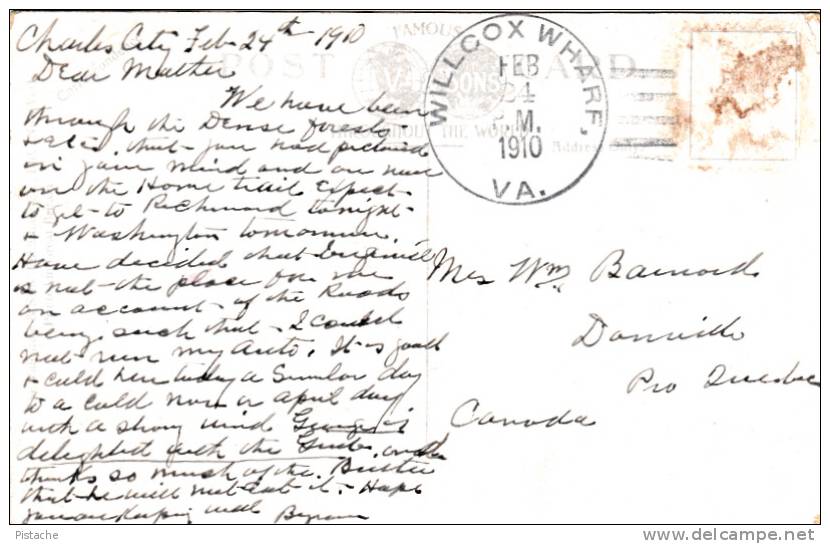 Charles City Feb 24th 1910
Dear Mother
We have been
through the Dense forests
that you had pictured
in your mind and are now
on the Home trail Expect
to get to Richmond tonight
& Washington tomorrow.
Have decided that
is not the place for me
on account of the Roads
being such that I could
not run my Auto. It is good
& cold here today a Similar day
to a cold Nov or April day
with a strong wind George is
delighted with the and
thinks so much of the Butter
that he will not eat it. Hope
you are keeping well Byron
FAMOUS
POST CARD
SONS
THE WORLD
Address Only
WILLCOX WHARF,
FEB
24
P.M.
1910
VA.
Mrs Wm Barnard
Danville
Pro Quebec
Canada
Pistache
www.delcampe.net